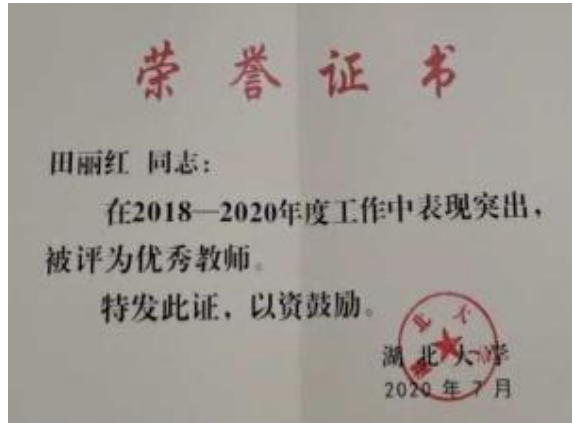 荣誉证书
田丽红 同志：
在2018—2020年度工作中表现突出，
被评为优秀教师。
特发此证，以资鼓励。
湖北大学
2020 年 7 月